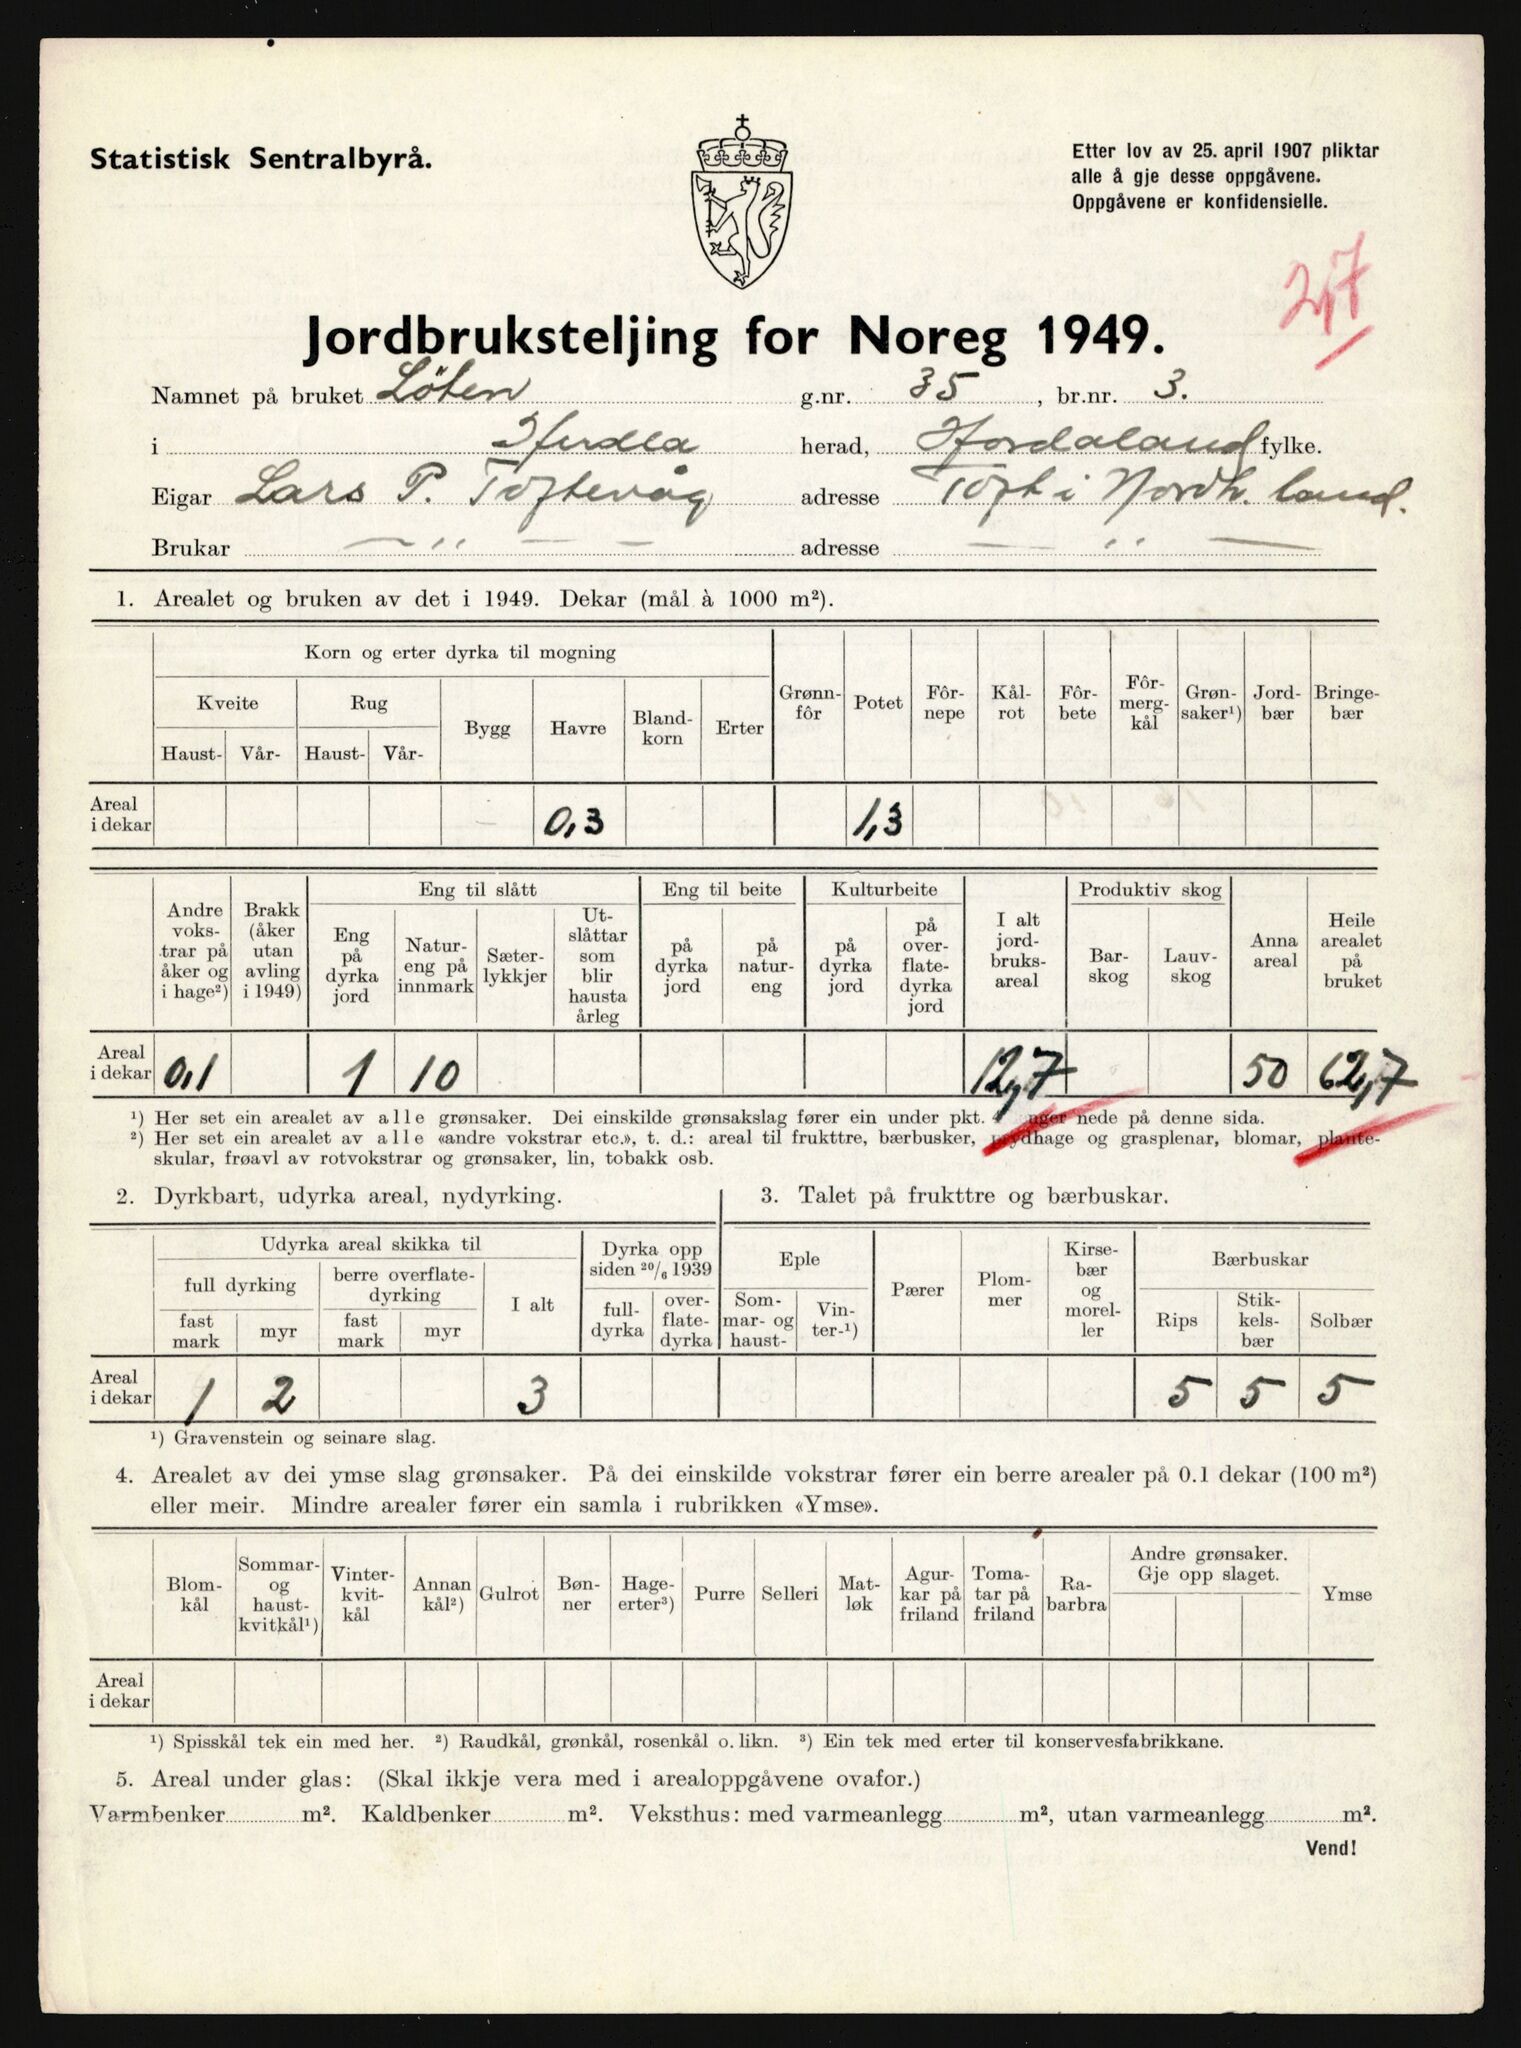 Statistisk Sentralbyrå.
Etter lov av 25. april 1907 pliktar
alle å gje desse oppgåvene.
Oppgåvene er konfidensielle.
2,7
Jordbruksteljing for Noreg 1949.
Namnet på bruket Löten g.nr. 35, br.nr. 3.
i Herdla herad, Hordaland fylke.
Eigar Lars P. Toftevåg adresse Toft i Nordh.land.
Brukar — ,, — — adresse — ,, —
1. Arealet og bruken av det i 1949. Dekar (mål à 1000 m²).
Korn og erter dyrka til mogning
Kveite Rug Bygg Havre Bland-korn Erter Grønn-fôr Potet Fôr-nepe Kål-rot Fôr-bete Fôr-merg-kål Grøn-saker¹) Jord-bær Bringe-bær
Haust- Vår- Haust- Vår-
Areal i dekar 0,3 1,3
Eng til slått Eng til beite Kulturbeite Produktiv skog
Andre voks-trar på åker og i hage²) Brakk (åker utan avling i 1949) Eng på dyrka jord Natur-eng på innmark Sæter-lykkjer Ut-slåttar som blir hausta årleg på dyrka jord på natur-eng på dyrka jord på over-flate-dyrka jord I alt jord-bruks-areal Bar-skog Lauv-skog Anna areal Heile arealet på bruket
Areal i dekar 0,1 1 10 12,7 50 62,7
¹) Her set ein arealet av alle grønsaker. Dei einskilde grønsakslag fører ein under pkt. 4 nede på denne sida.
²) Her set ein arealet av alle «andre vokstrar etc.», t. d.: areal til frukttre, bærbusker, prydhage og grasplenar, blomar, plante-
skular, frøavl av rotvokstrar og grønsaker, lin, tobakk osb.
2. Dyrkbart, udyrka areal, nydyrking.
3. Talet på frukttre og bærbuskar.
Udyrka areal skikka til Dyrka opp siden 20/6 1939 Eple Pærer Plom-mer Kirse-bær og morel-ler Bærbuskar
full dyrking berre overflate-dyrking I alt full-dyrka over-flate-dyrka Som-mar- og haust- Vin-ter-¹) Rips Stik-kels-bær Solbær
fast mark myr fast mark myr
Areal i dekar 1 2 3 5 5 5
¹) Gravenstein og seinare slag.
4. Arealet av dei ymse slag grønsaker. På dei einskilde vokstrar fører ein berre arealer på 0.1 dekar (100 m²)
eller meir. Mindre arealer fører ein samla i rubrikken «Ymse».
Blom-kål Sommar- og haust-kvitkål¹) Vinter-kvit-kål Annan kål²) Gulrot Bøn-ner Hage-erter³) Purre Selleri Mat-løk Agur-kar på friland Toma-tar på friland Ra-barbra Andre grønsaker. Gje opp slaget. Ymse
Areal i dekar
¹) Spisskål tek ein med her. ²) Raudkål, grønkål, rosenkål o. likn. ³) Ein tek med erter til konservesfabrikkane.
5. Areal under glas: (Skal ikkje vera med i arealoppgåvene ovafor.)
Varmbenker m². Kaldbenker m². Veksthus: med varmeanlegg m², utan varmeanlegg m².
Vend!